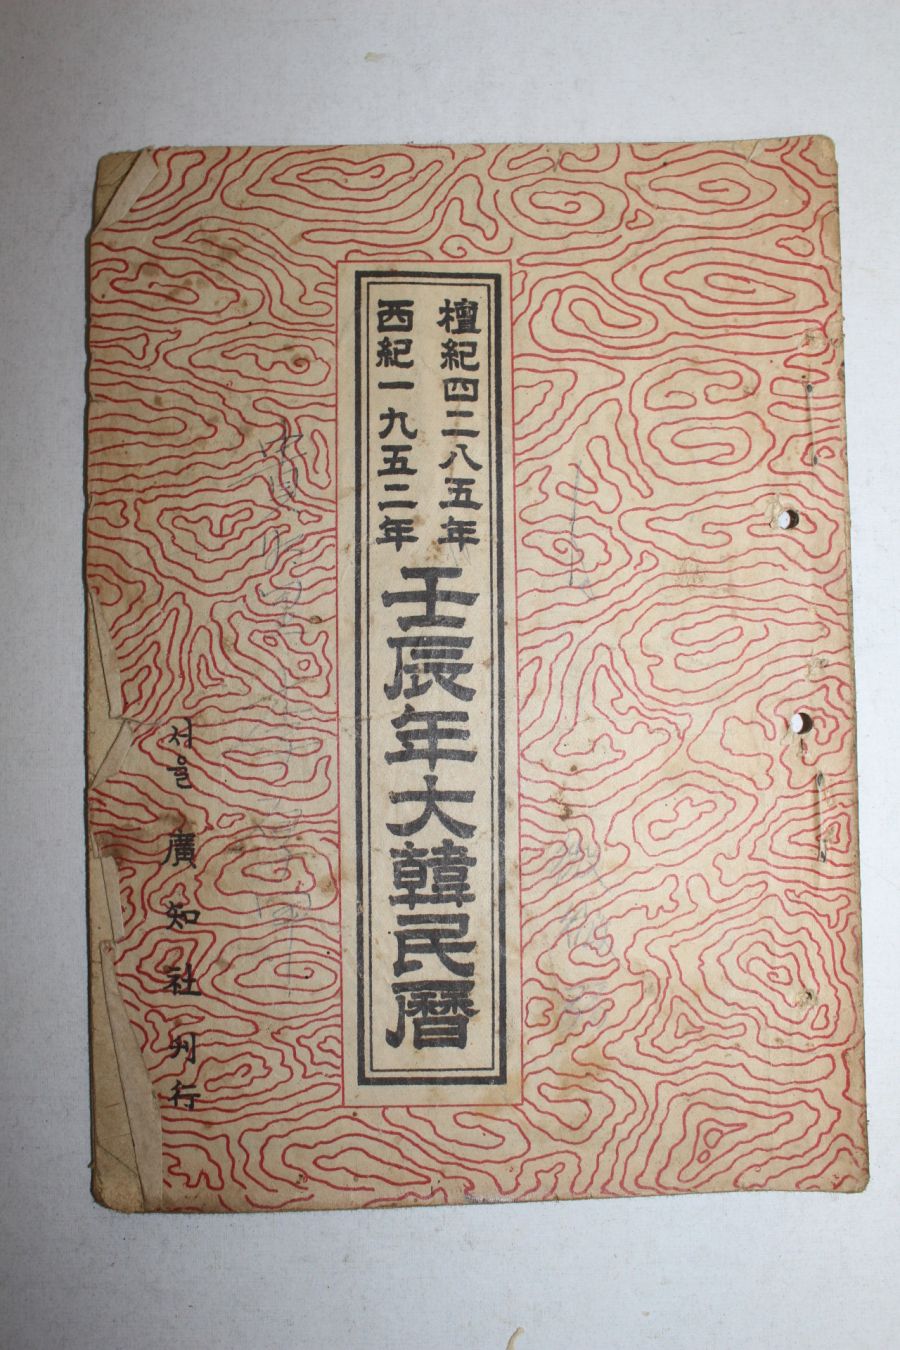 檀紀四二八五年
西紀一九五二年
壬辰年大韓民曆
서울 廣知社刋行